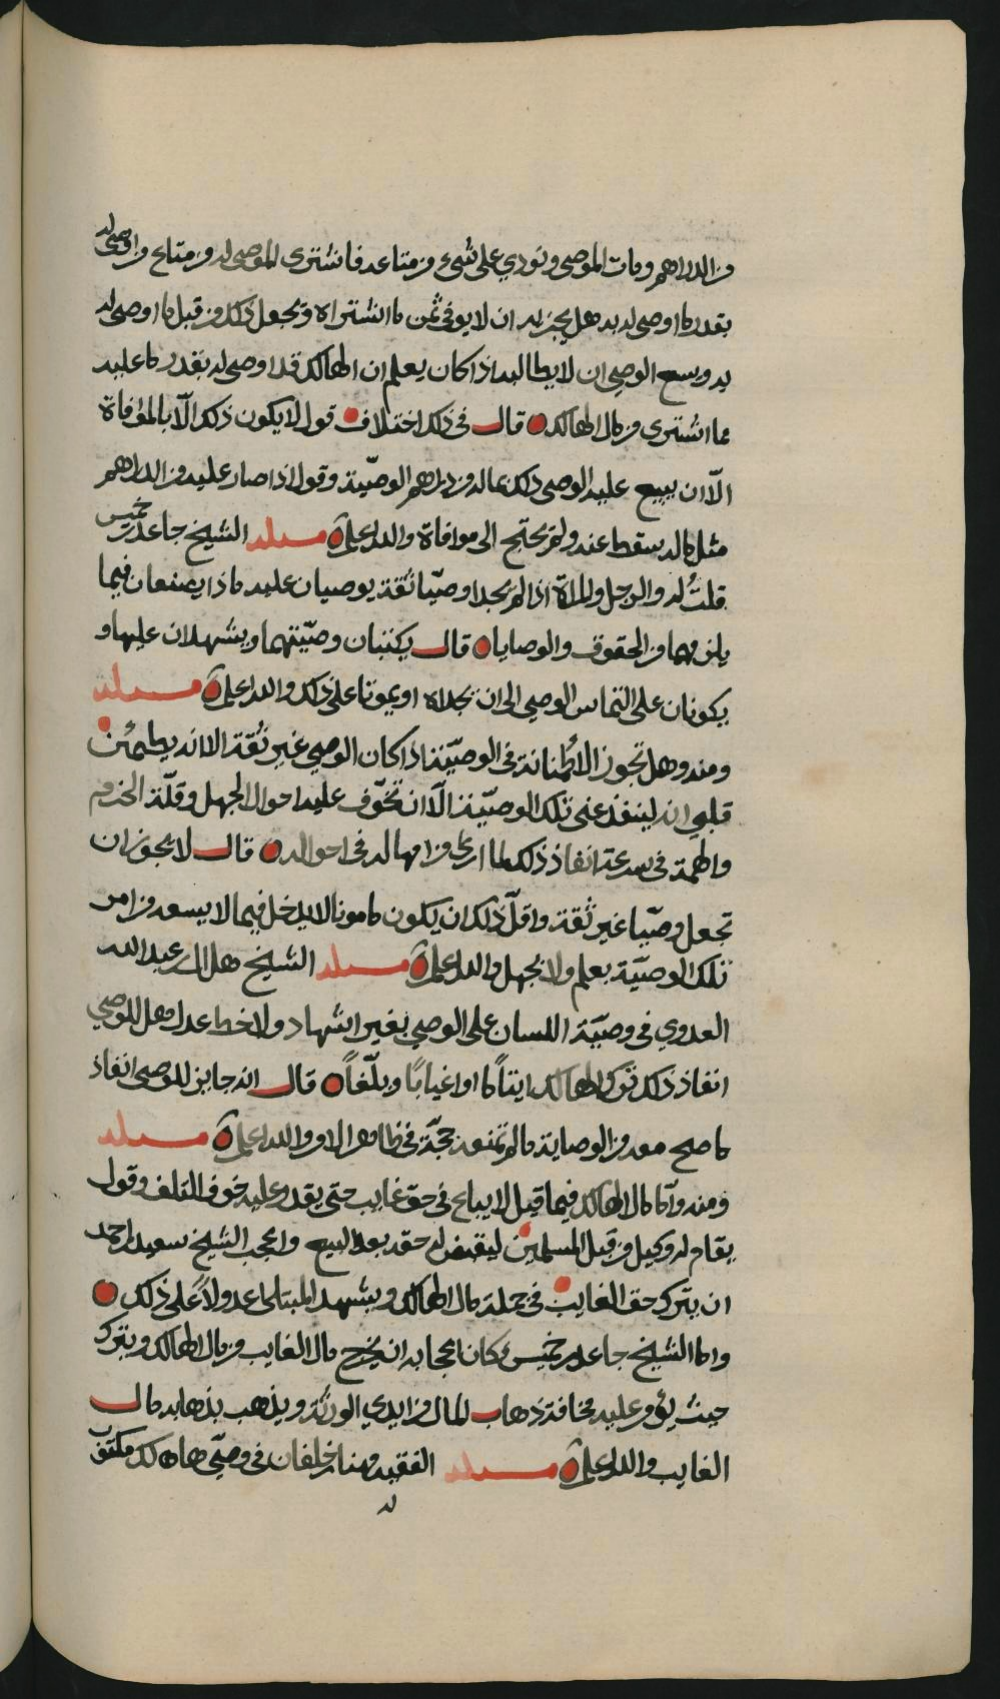 من الدراهم ومات الموصي ونودي على شيء من متاعه فاشترى الموصى له من متاع من اوصى له
بقدر ما اوصى له به هل يجزيه ان لا يوفي ثمن ما اشتراه ويجعل ذلك من قبل ما اوصى له
به ويسع الوصي ان لا يطالبه اذا كان يعلم ان الهالك قد اوصى له بقدر ما عليه
مما اشترى من مال الهالك قال في ذلك اختلاف قول لا يكون ذلك الّا بالموافاة
الّا ان يبيع عليه الوصي ذلك بماله من دراهم الوصيّة وقول اذا صار عليه من الدراهم
مثل ماله سقط عنه ولم يحتج الى موافاة والله اعلم مسئلة الشيخ جاعد بن خميس
قلتُ له والرجل والمراة اذا لم يجدا وصيّا ثقة يوصيان عليه ماذا يصنعان فيما
يلزمهما من الحقوق والوصايا قال يكتبان وصيّتهما ويشهدان عليها و
يكونان على التماس الوصي الى ان يجداه او يموتا على ذلك والله اعلم مسئلة
ومنه وهل تجوز الاطمئنانة في الوصيّة اذا كان الوصي غير ثقة الا انه يطمئن
قلبي انه لينفذ عني تلك الوصيّة الّا ان تخوّف عليه احوال الجهل وقلّة الحزم
والهمة في سرعة انفاذ ذلك لما ارى من امهاله في احواله قال لا يجوز ان
تجعل وصيّا غير ثقة واقلّ ذلك ان يكون مامونا لا يدخل فيما لا يسعه من امر
تلك الوصيّة بعلم ولا بجهل والله اعلم مسئلة الشيخ هلال بن عبدالله
العدوي في وصيّة اللسان على الوصي بغير اشهاد ولا خط عدل وهل للوصي
انفاذ ذلك ترك الهالك ايتاما او اغيابًا وبلّغًا قال انه جايز للوصي انفاذ
ما صح معه من الوصاية ما لم تمنعه حجّة في ظاهر الامر والله اعلم مسئلة
ومنه وأما مال الهالك فيما قيل لا يباع في حق غايب حتى يقدر عليه خوف التلف وقول
يقام له وكيل من قبل المسلمين ليقبض له حقه بعد البيع واعجب الشيخ سعيد بن احمد
ان يترك حق الغايب في جملة مال الهالك ويشهد المبتلى عدولاً على ذلك
واما الشيخ جاعد بن خميس فكان اعجابه ان يخرج مال الغايب من مال الهالك ويترك
حيث يؤمر عليه مخافة ذهاب المال من ايدي الورثة ويذهب بذهابه مال
الغايب والله اعلم مسئلة الفقيه مهنا بن خلفان في وصي هالك